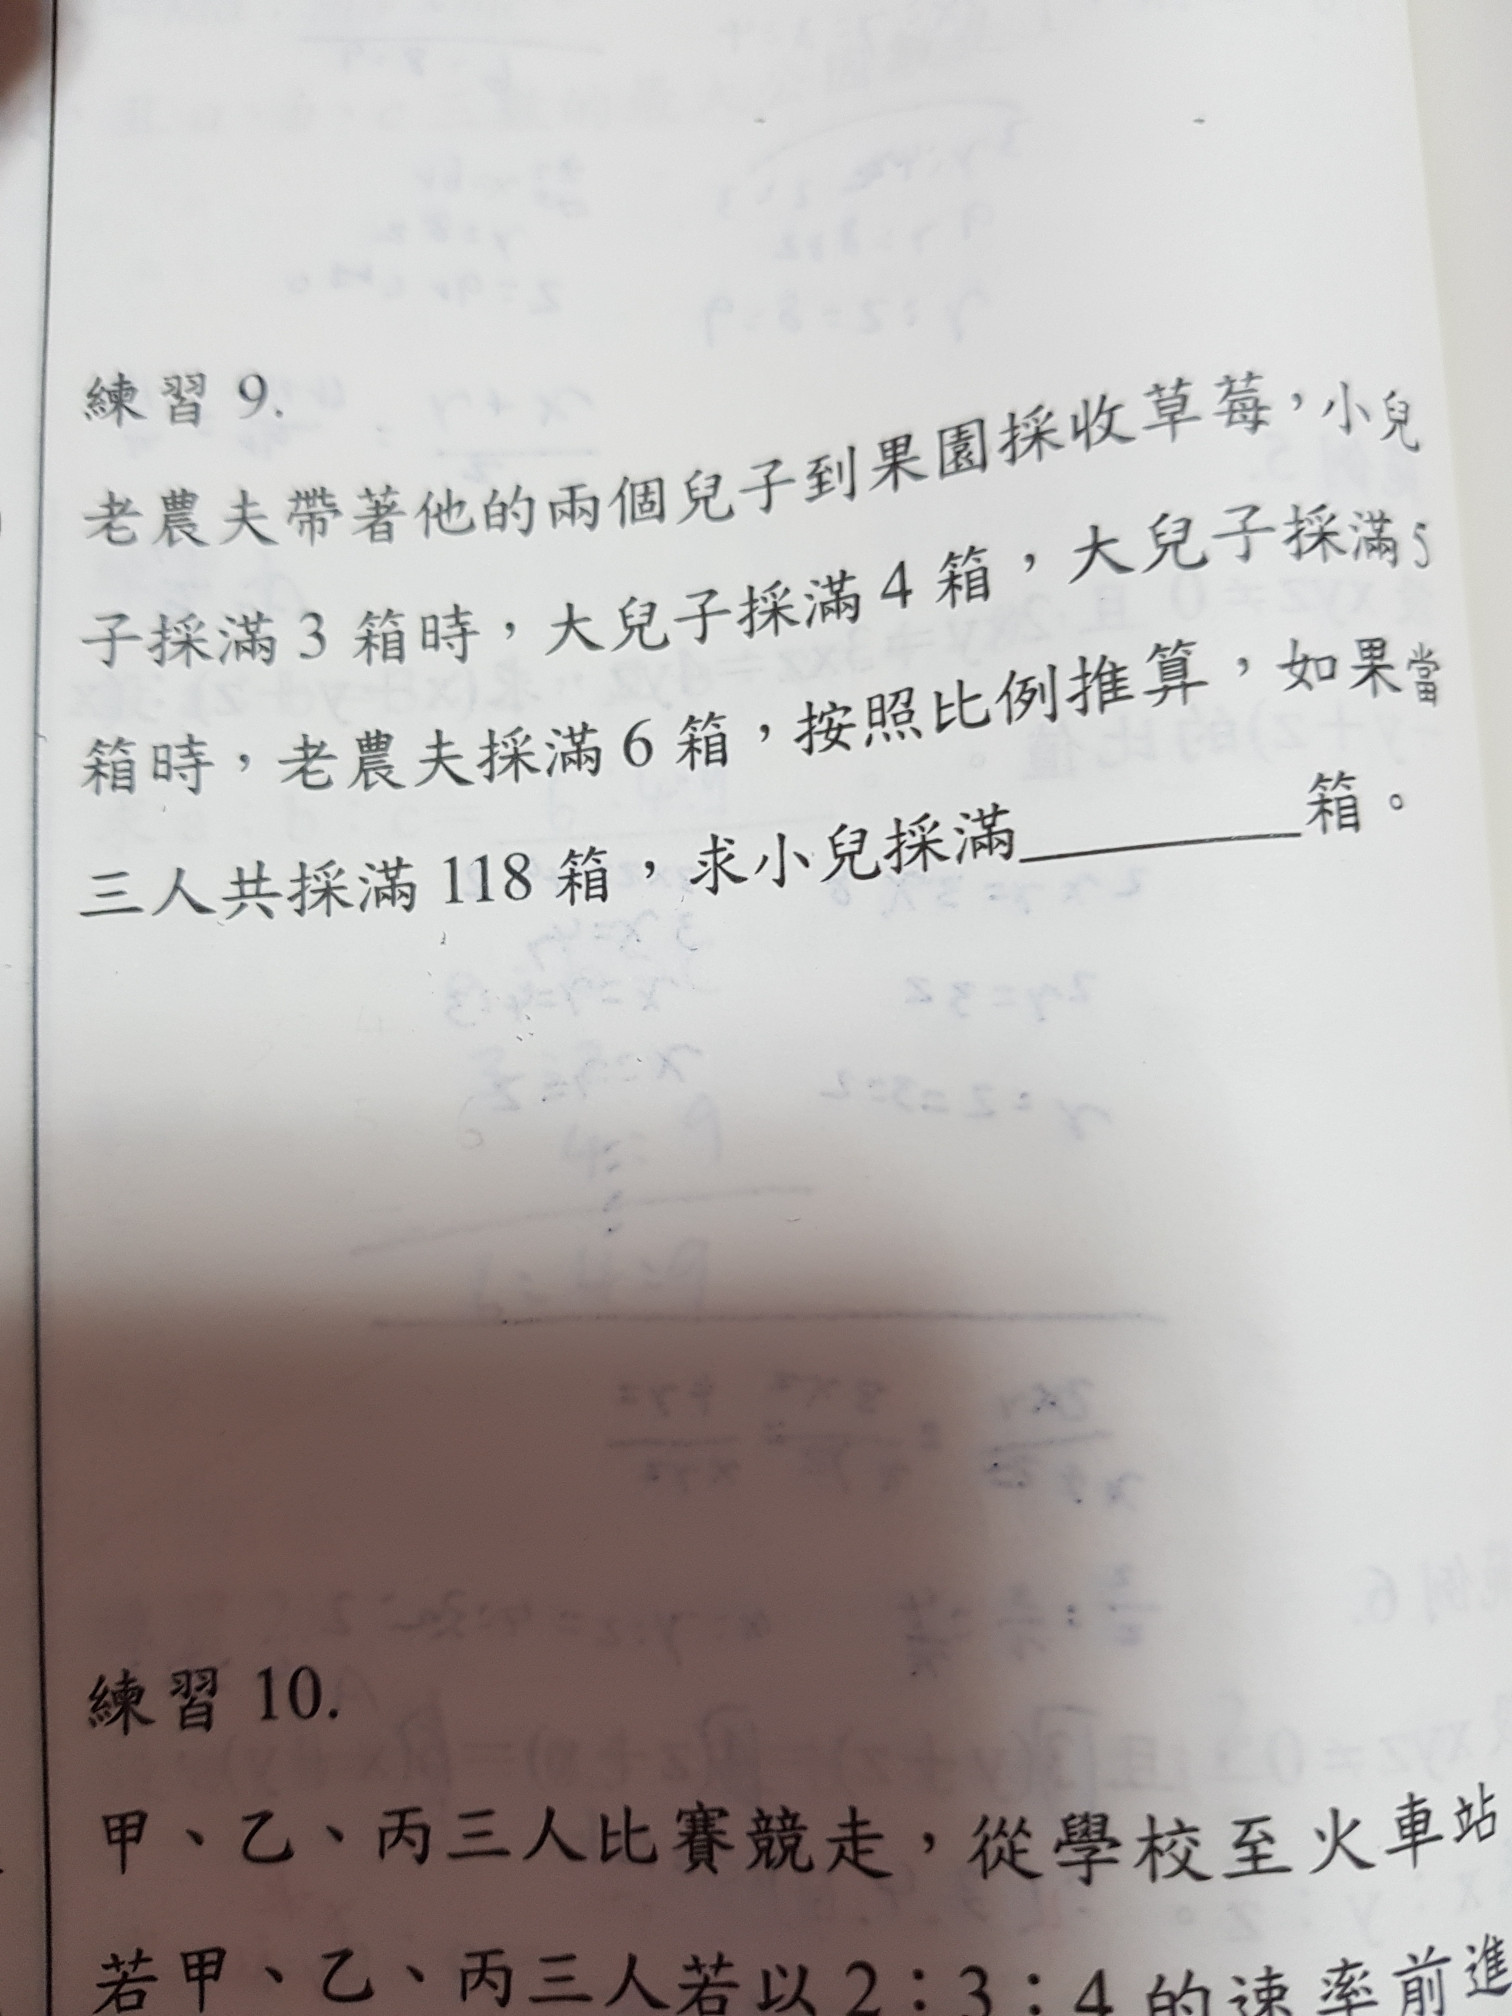 練習 9.
老農夫帶著他的兩個兒子到果園採收草莓，小兒
子採滿 3 箱時，大兒子採滿 4 箱，大兒子採滿 5
箱時，老農夫採滿 6 箱，按照比例推算，如果當
三人共採滿 118 箱，求小兒採滿________箱。
練習 10.
甲、乙、丙三人比賽競走，從學校至火車站
若甲、乙、丙三人若以 2：3：4 的速率前進